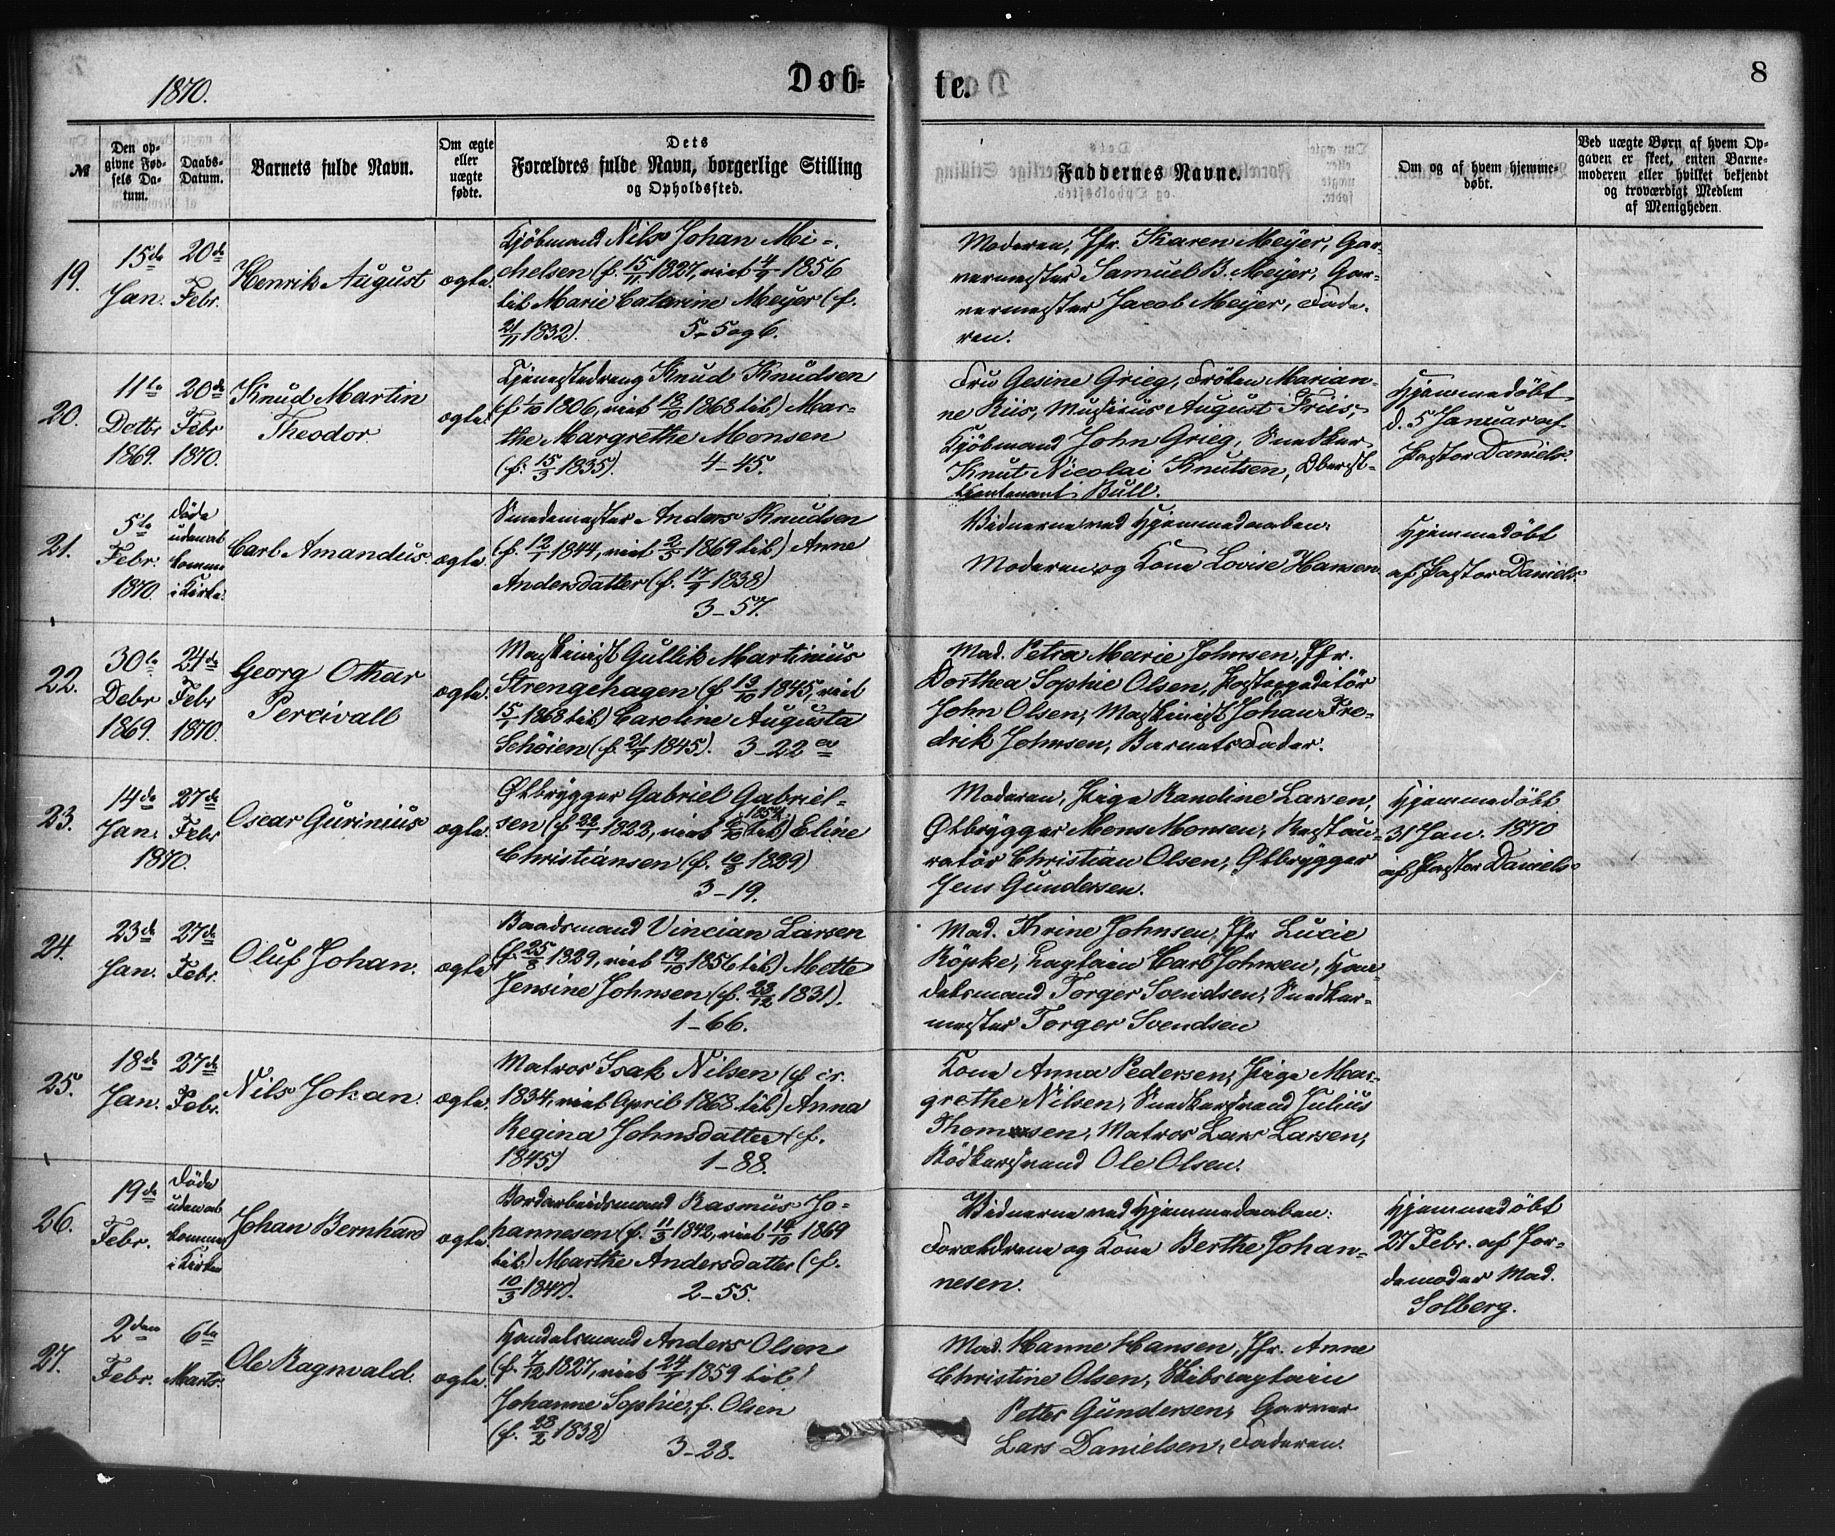 1870.
Døb-
te.
8
№
Den op-
givne Fød-
sels Da-
tum.
Daabs-
Datum.
Barnets fulde Navn.
Om ægte
eller
uægte
fødte.
Dets
Forældres fulde Navn, borgerlige Stilling
og Opholdssted.
Faddernes Navne.
Om og af hvem hjemme-
døbt.
Ved uægte Børn af hvem Op-
gaven er skeet, enten Barne-
moderen eller hvilket bekjendt
og troværdigt Medlem
af Menigheden.
19.
15de
Jan.
20de
Febr.
Henrik August
ægte.
Kjöbmand Nils Johan Mi-
chelsen (f. 15/11 1827, viet 4/9 1856
til) Marie Catarine Meyer (f.
21/11 1832). 5-5 og 6.
Moderen, Jfr. Karen Meyer, Gar-
vermester Samuel B. Meyer, Gar-
vermester Jacob Meyer, Fade-
ren.
20.
11te
Decbr
1869.
20de
Febr
1870.
Knud Martin
Theodor.
ægte.
Tjenestedreng Knud Knudsen
(f. 1/10 1806, viet 18/10 1868 til) Mar-
the Margrethe Monsen
(f. 15/3 1835). 4-45.
Fru Gesine Grieg, Fröken Marian-
ne Riis, Musicus August Friis,
Kjöbmand John Grieg, Snedker
Knut Nicolai Knutsen, Oberst-
lieutenant Bull.
Hjemmedöbt
d. 5 Januar af
Pastor Daniels.
21.
5te
Febr.
1870.
Döde
uden at
komme
i Kirke.
Carl Amandus.
ægte.
Smedemester Anders Knudsen
(f. 12/7 1844, viet 2/5 1869 til) Anne
Andersdatter (f. 17/9 1838)
3-57.
Vidnerne ved Hjemmedaaben:
Moderen og Kone Lovise Hansen
Hjemmedöbt
af Pastor Daniels.
22.
30te
Decbr
1869.
24de
Febr
1870.
Georg Othar
Percivall
ægte.
Maskinist Gullik Martinius
Strengehagen (f 13/10 1845, viet
15/1 1868 til) Caroline Augusta
Schöien (f. 21/7 1845). 3-22 a
Mad. Petra Marie Johnsen, Jfr.
Dorthea Sophie Olsen, Postexpeditör
John Olsen, Maskinist Johan Fre-
drik Johnsen, Barnets Fader.
23.
14de
Jan.
1870.
27de
Febr
Oscar Gurinius
ægte.
Ölbrygger Gabriel Gabriel-
1854
sen (f 22/7 1822, viet til) Eline
Christiansen (f. 1829)
3-19.
Moderen, Pige Randine Larsen,
Ölbrygger Mons Monsen, Restau-
ratör Christian Olsen, Ölbrygger
Jens Gundersen.
Hjemmedöbt
31 Jan. 1870
af Pastor Daniels.
24.
23de
Jan.
27de
Febr.
Oluf Johan.
ægte
Baadsmand Vincian Larsen
(f. 25/8 1829, viet 19/10 1856 til) Mette
Jensine Johnsen (f. 23/12 1831).
1-66.
Mad. Trine Johnsen, Jfr Lucie
Röpke, Captain Carl Johnsen, Han-
delsmand Torger Svendsen, Snedker-
mester Torger Svendsen
25.
18de
Jan.
27de
Febr.
Nils Johan.
ægte.
Matros Isak Nilsen (f cr.
1834, viet April 1868 til) Anna
Regina Johnsdatter (f.
1845) 1-88.
Kone Anna Pedersen, Pige Mar-
grethe Nilsen, Snedkersvend Julius
Thomesen, Matros Lars Larsen,
Bödkersvend Ole Olsen.
26.
19de
Febr.
Döde
uden at
komme
i Kirken
Johan Bernhard
ægte.
Bordarbeidsmand Rasmus Jo-
hannesen (f. 11/3 1842, viet 14/10 1869
til) Marthe Andersdatter (f.
10/3 1847). 2-55.
Vidnerne ved Hjemmedaaben:
Forældrene og Kone Berthe Johan-
nesen.
Hjemmedöbt
27 Febr. af Jor-
demoder Mad.
Solberg.
27.
2den
Febr.
6te
Marts.
Ole Ragnvald.
ægte.
Handelsmand Anders Olsen
(f. 7/12 1827, viet 24/7 1859 til)
Johanne Sophie, f. Olsen
(f. 28/2 1838)
3-28.
Mad. Hanne Hansen, Jfr. Anne
Christine Olsen, Skibscaptain
Petter Gundersen, Garver
Lars Danielsen, Faderen.